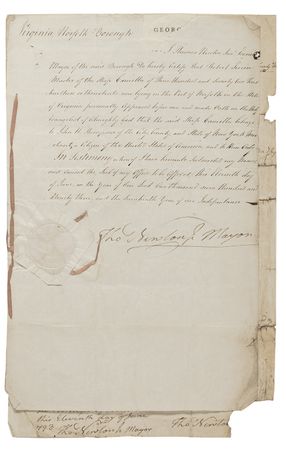 Virginia Norfolk Borough
GEORG
I Thomas Newton Jun.
Mayor of the said Borough Do hereby Certify that Robert
Master of the Ship Camilla of Three Hundred and Seventy two Tons
Burthen or thereabouts now lying in the Port of Norfolk in the State
of Virginia personally Appeared before me and made Oath on the Holy
Evangelist of Almighty God that the said Ship Camilla belongs
to John of the City County and State of New York
a Citizen of the United States of America and to
In Testimony whereof I have hereunto Subscribed my Name
and caused the Seal of my Office to be Affixed this Eleventh day
of June in the Year of our Lord One Thousand Seven Hundred and
Ninety three and the Seventeenth Year of our Independence
Tho.s Newton Jr Mayor
this Eleventh day of June
1793 Tho.s Newton Jr Mayor
Tho.s Newton